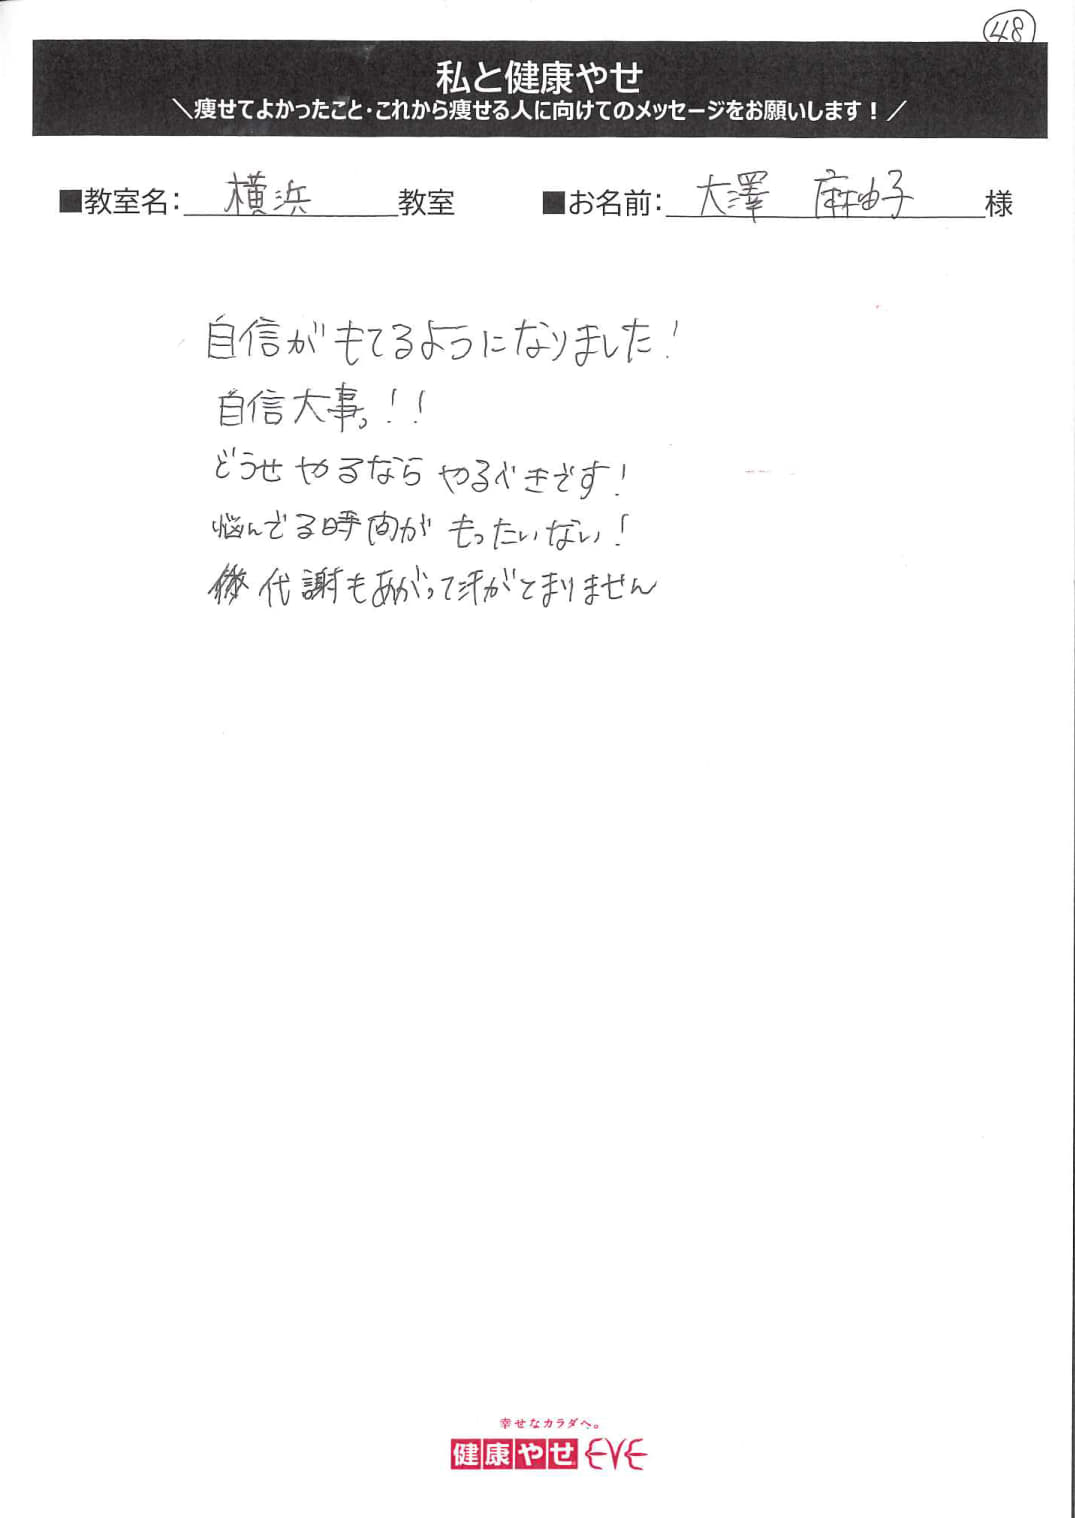 48
私と健康やせ
＼痩せてよかったこと・これから痩せる人に向けてのメッセージをお願いします！／
■教室名： 横浜 教室 ■お名前： 大澤 麻由子 様
自信がもてるようになりました！
自信大事。！！
どうせやるならやるべきです！
悩んでる時間がもったいない！
代謝もあがって汗がとまりません
幸せなカラダへ。
健康やせ EVE